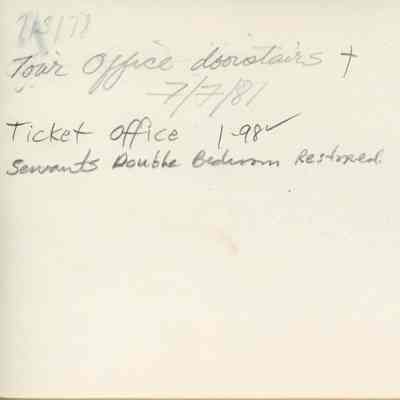 Tour Office downstairs †
7/7/81
Ticket Office 1-98✓
Servants Double Bedroom Restored.